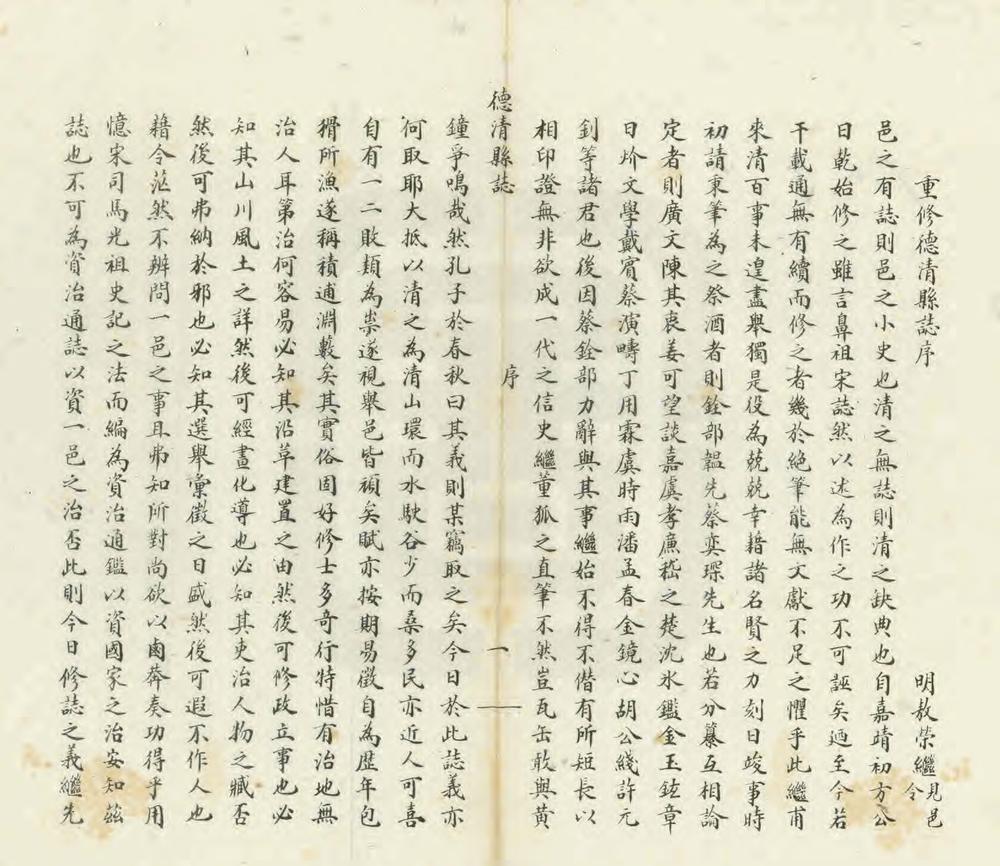 重修德清縣誌序
明敖榮繼見邑令
邑之有誌則邑之小史也清之無誌則清之缺典也自嘉靖初方公
日乾始修之雖言鼻祖宋誌然以述為作之功不可誣矣迺至今若
干載通無有續而修之者幾於絶筆能無文獻不足之懼乎此繼甫
來清百事未遑盡舉獨是役為兢兢幸藉諸名賢之力刻日竣事時
初請秉筆為之祭酒者則銓部韞先蔡奕琛先生也若分纂互相論
定者則廣文陳其衷姜可望談嘉虞孝廉嵇之楚沈氷鑑金玉鉉章
日炌文學戴賓蔡演疇丁用霖虞時雨潘孟春金鏡心胡公綫許元
釗等諸君也後因蔡銓部力辭與其事繼始不得不僭有所短長以
相印證無非欲成一代之信史繼董狐之直筆不然豈瓦缶敢與黃
德清縣誌
序
一
鐘爭鳴哉然孔子於春秋曰其義則某竊取之矣今日於此誌義亦
何取耶大抵以清之為清山環而水駛谷少而桑多民亦近人可喜
自有一二敗類為祟遂視舉邑皆頑矣賦亦按期易徵自為歷年包
猾所漁遂稱積逋淵藪矣其實俗固好修士多奇行特惜有治地無
治人耳第治何容易必知其沿革建置之由然後可修政立事也必
知其山川風土之詳然後可經畫化導也必知其吏治人物之臧否
然後可弗納於邪也必知其選舉彙徵之日盛然後可遐不作人也
藉令茫然不辨問一邑之事且弗知所對尚欲以鹵莽奏功得乎用
憶宋司馬光祖史記之法而編為資治通鑑以資國家之治安知茲
誌也不可為資治通誌以資一邑之治否此則今日修誌之義繼先